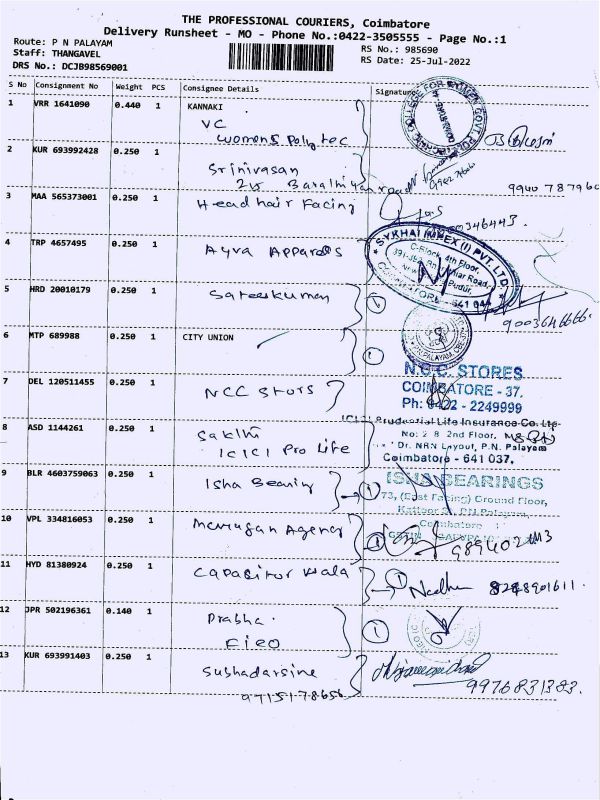 THE PROFESSIONAL COURIERS, Coimbatore
Delivery Runsheet - MO - Phone No.:0422-3505555 - Page No.:1
Route: P N PALAYAM
Staff: THANGAVEL
DRS No.: DCJB98569001
RS No.: 985690
RS Date: 25-Jul-2022
S No Consignment No Weight PCS Consignee Details Signature
1 VRR 1641090 0.440 1 KANNAKI
VC
womens Polytec
2 KUR 693992428 0.250 1
Srinivasan
3 MAA 565373001 0.250 1 Head hair Facing
4 TRP 4657495 0.250 1 Ayva Apparels
SYKHAI IMPEX (I) PVT. LTD.
C-Block, 4th Floor,
COIMBATORE - 641 044
5 HRD 20010179 0.250 1 Sateeskumar
9003646666.
6 MTP 689988 0.250 1 CITY UNION
N.C.C. STORES
COIMBATORE - 37.
Ph: 0422 - 2249999
7 DEL 120511455 0.250 1 NCC Stors
ICICI Prudential Life Insurance Co. Ltd.
2nd Floor,
Dr. NRN Layout, P.N. Palayam
Coimbatore - 641 037.
8 ASD 1144261 0.250 1 Sakthi
ICICI Pro Life
9 BLR 4603759063 0.250 1 Isha Bearing
ISHA BEARINGS
73, (East Facing) Ground Floor,
P.N.Palayam,
Coimbatore
10 VPL 334816053 0.250 1 Murugan Agency
11 HYD 81380924 0.250 1 Capacitor wala
12 JPR 502196361 0.140 1 Prabha
13 KUR 693991403 0.250 1 Subhadarsine
9976831383.